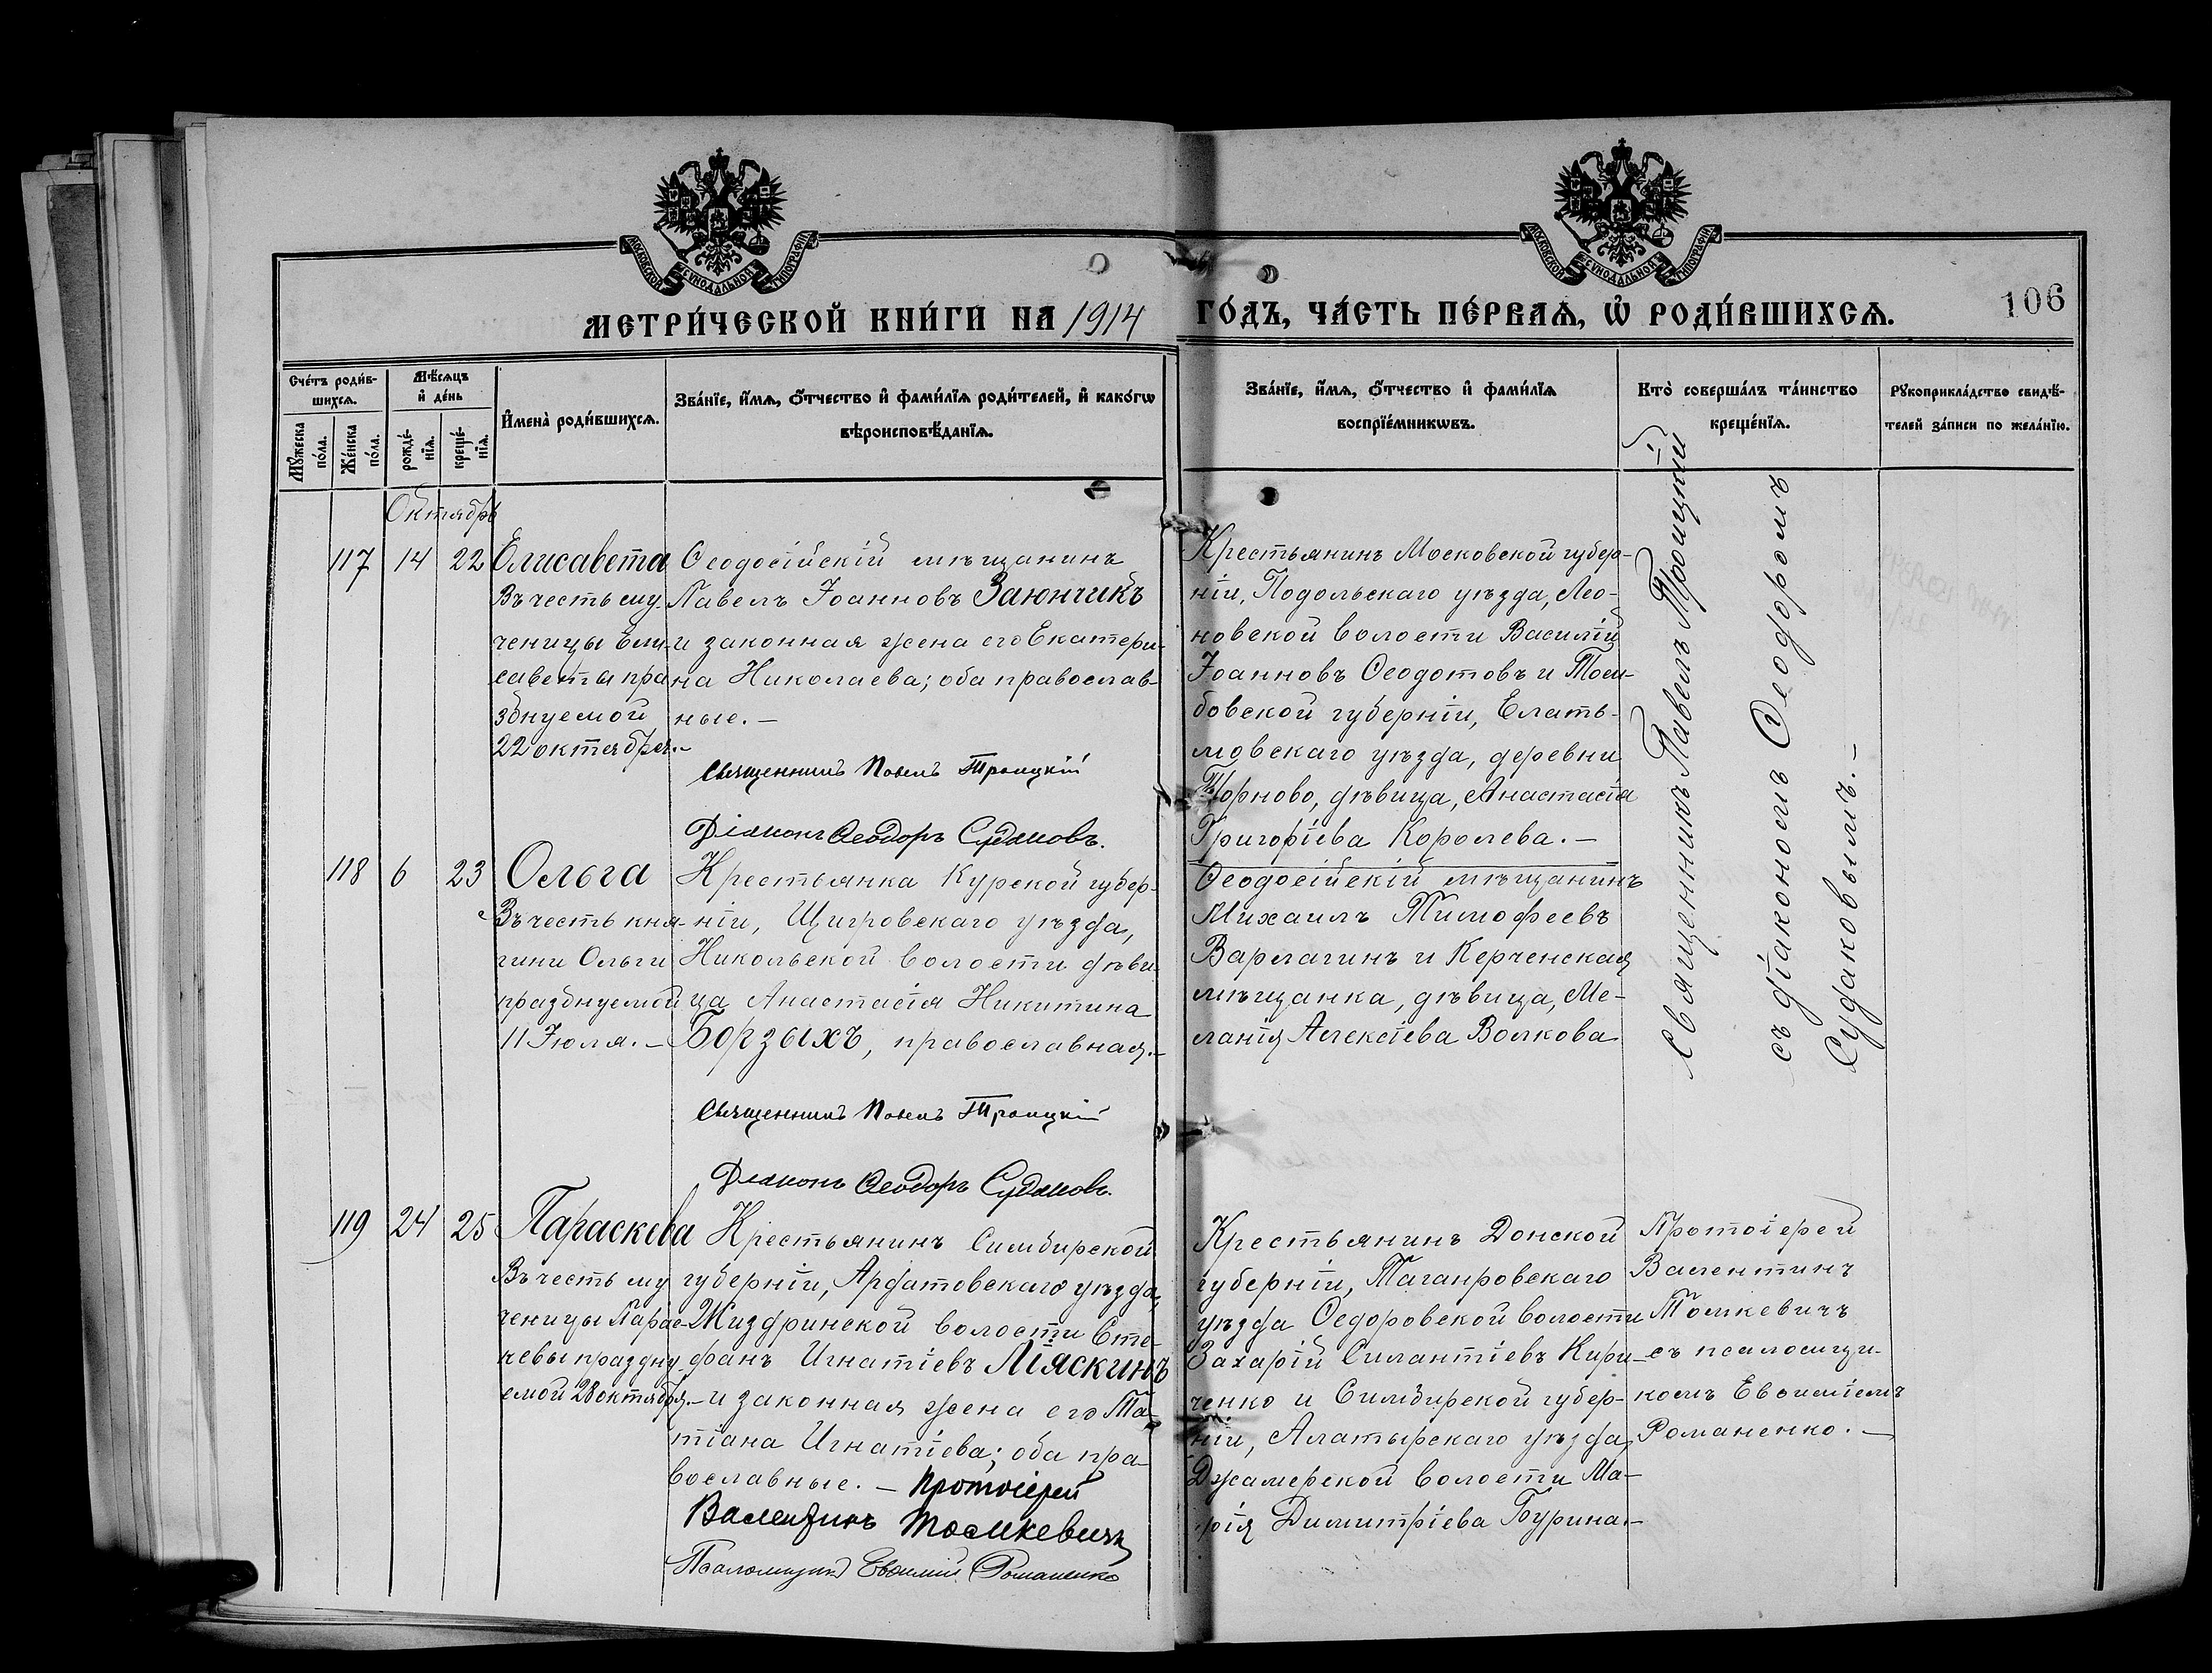 МОСКОВСКОЙ СѴНОДАЛЬНОЙ ТИПОГРАФІИ
МОСКОВСКОЙ СѴНОДАЛЬНОЙ ТИПОГРАФІИ
МЕТРИ́ЧЕСКОЙ КНИ́ГИ НА 1914 ГО́ДЪ, ЧА́СТЬ ПЕ́РВАѦ, Ѡ҆ РОДИ́ВШИХСѦ.
106
Сче́тъ роди́в-
шихсѧ.
Мꙋ́жеска по́ла.
Же́нска по́ла.
Мѣ́сѧцъ и҆ де́нь
рожде́-
нїѧ.
креще́-
нїѧ.
И҆мена̀ роди́вшихсѧ.
Зва́нїе, и҆́мѧ, ѻ҆́тчество и҆ фами́лїѧ роди́телей, и҆ како́гѡ
вѣроисповѣ́данїѧ.
Зва́нїе, и҆́мѧ, ѻ҆́тчество и҆ фами́лїѧ
воспрїе́мникѡвъ.
Кто̀ соверша́лъ та́инство
креще́нїѧ.
Рꙋкоприкла́дство свидѣ́-
телей за́писи по жела́нїю.
Октябрь
117 14 22
Елисавета
Въ честь му-
ченицы Ели-
саветы пра
зднуемой
22 октября.-
Ѳеодосійскій мѣщанинъ
Павелъ Іоанновъ Заюнчикъ
и законная жена его Екатери-
на Николаева; оба православ-
ные. –
Священникъ Павелъ Троицкій
Діаконъ Ѳеодоръ Судаковъ.
Крестьянинъ Московской губер-
ніи, Подольскаго уѣзда, Лео-
новской волости Василій
Іоанновъ Ѳеодотовъ и Там-
бовской губерніи, Елать-
мовскаго уѣзда, деревни
Торново, дѣвица, Анастасія
Григоріева Королева. –
Священникъ Павелъ Троицкій
съ діакономъ Ѳеодоромъ
Судаковымъ. –
118 6 23
Ольга
Въ честь кня-
гини Ольги
празднуемой
11 Іюля. –
Крестьянка Курской губер-
ніи, Щигровскаго уѣзда,
Никольской волости дѣви-
ца Анастасія Никитина
Борзыхъ, православная. –
Священникъ Павелъ Троицкій
Діаконъ Ѳеодоръ Судаковъ.
Ѳеодосійскій мѣщанинъ
Михаилъ Тимофеевъ
Варлагинъ и Керченская
мѣщанка, дѣвица, Ме-
ланія Алексіева Волкова
119 24 25
Параскева
Въ честь му
ченицы Парас-
кевы праздну-
емой 28 октября. –
Крестьянинъ Симбирской
губерніи, Ардатовскаго уѣзда,
Жиздринской волости Сте-
фанъ Игнатіевъ Ляскинъ
и законная жена его Та-
тіана Игнатіева; оба пра-
вославные. – Протоіерей
Валентинъ Томкевичъ
Псаломщикъ Евѳимій Романенко
Крестьянинъ Донской
губерніи, Таганровскаго
уѣзда Ѳедоровской волости
Захарій Силантіевъ Кири-
ченко и Симбирской губер-
ніи, Алатырскаго уѣзда,
Джамерской волости Ма-
рія Димитріева Бурина. –
Протоіерей
Валентинъ
Томкевичъ
съ псаломщи-
комъ Евѳиміемъ
Романенко. –